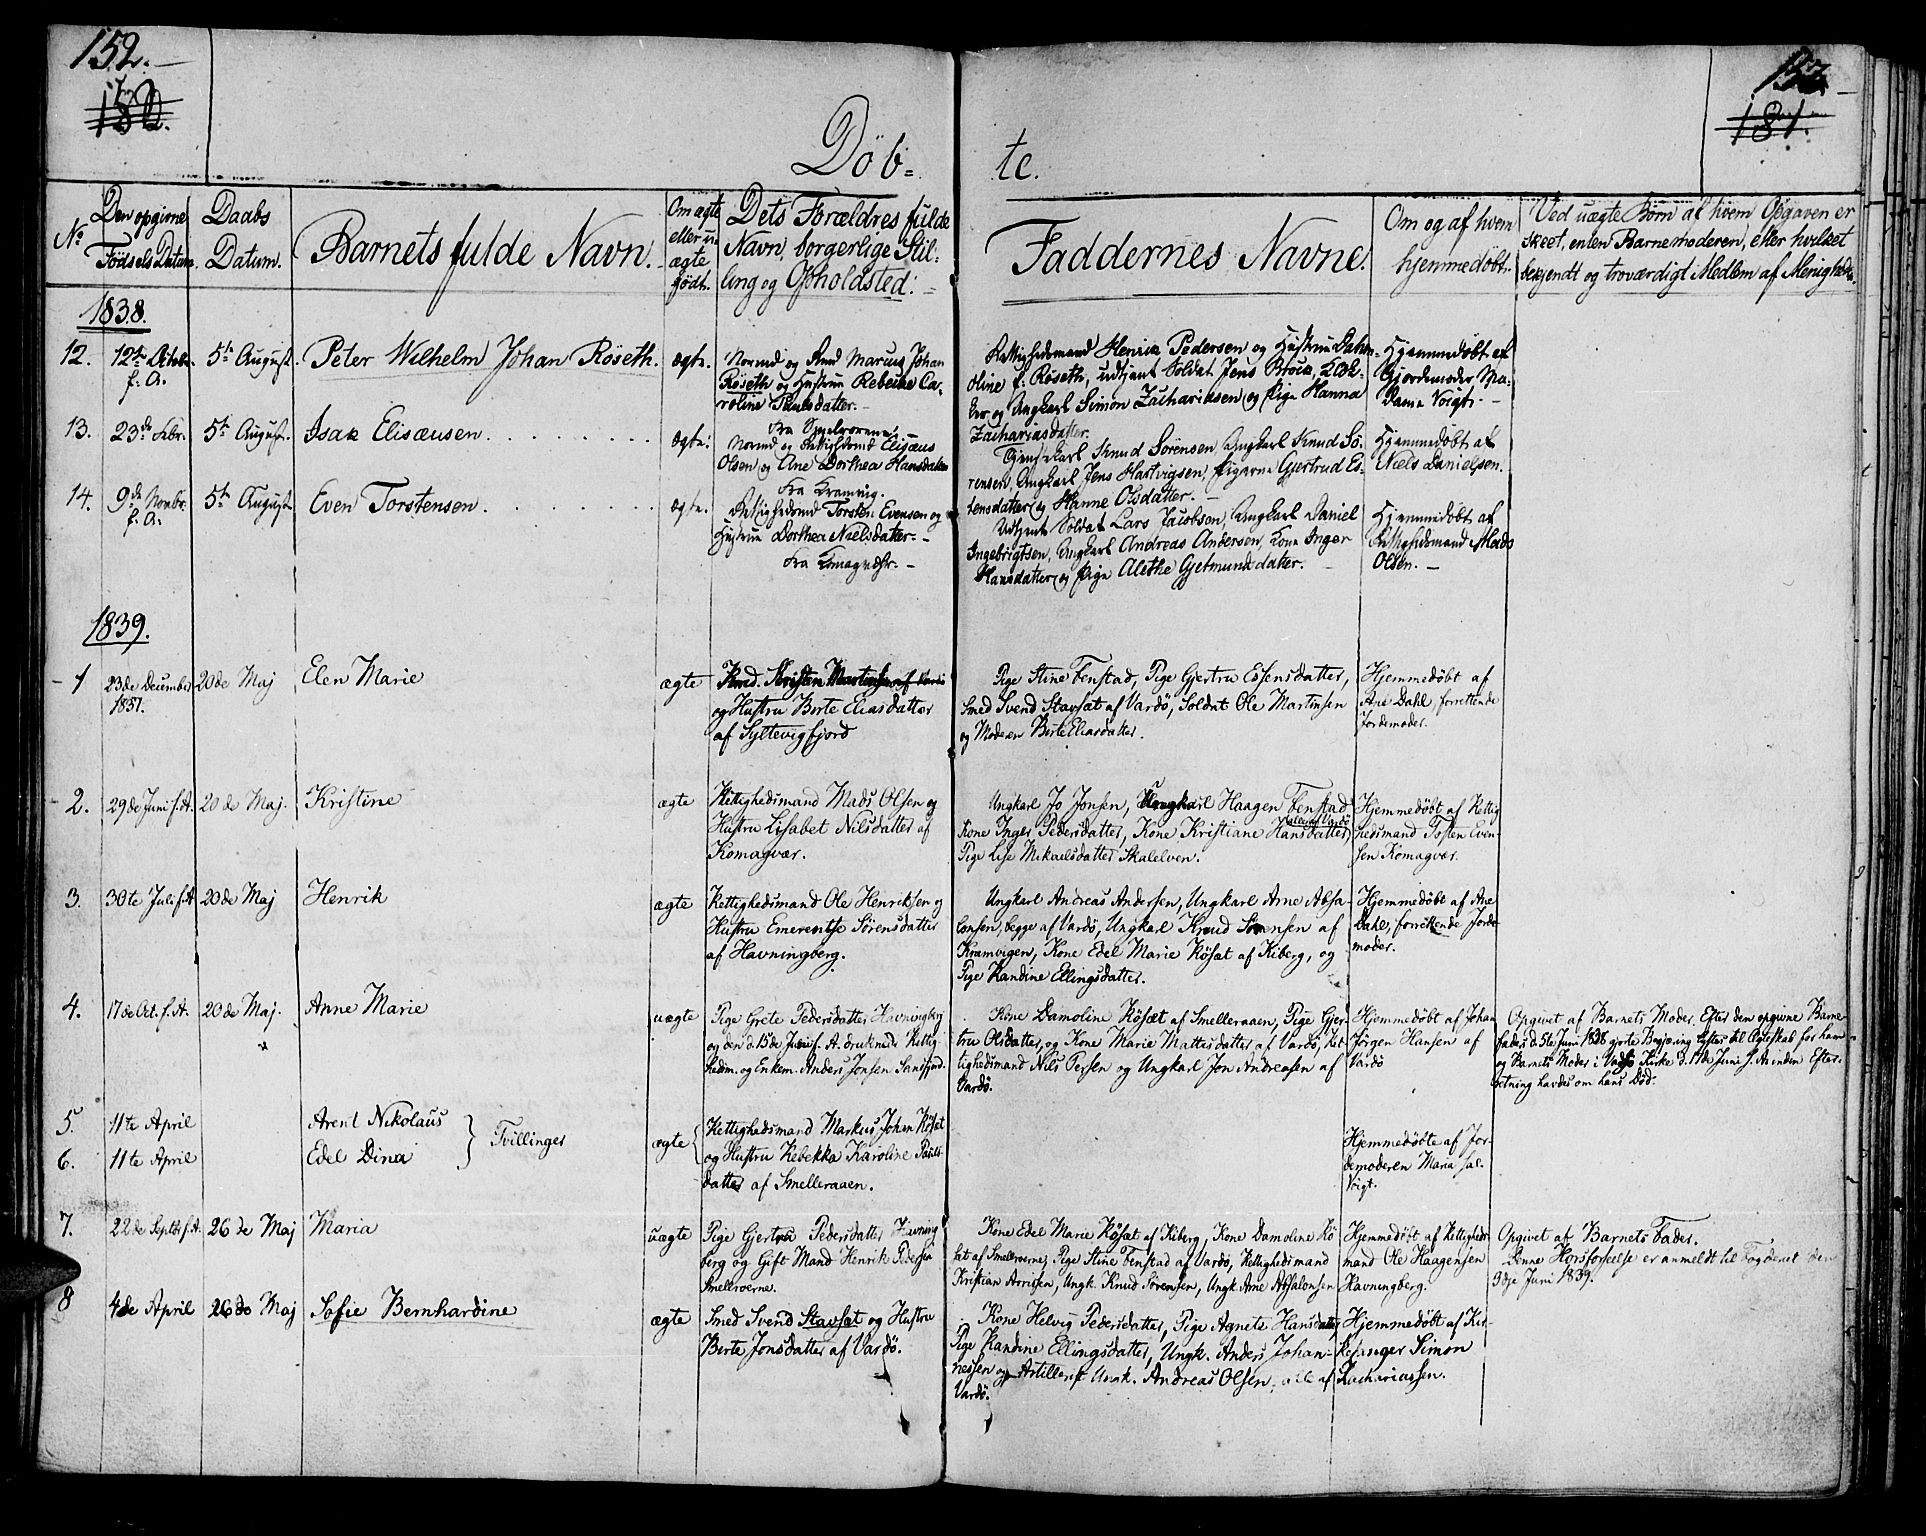 152.
180.
153
181.
Døb=
te.
No
Den opgivne Fødsels Datum
Daabs Datum.
Barnets fulde Navn.
Om ægte eller uægte født.
Dets Forældres fulde Navn, borgerlige Stilling og Opholdsted:
Faddernes Navne.
Om og af hvem hjemmedøbt.
Ved uægte Børn af hvem Opgaven er skeet, enten Barnemoderen, eller hvilket bekjendt og troværdigt Medlem af Menigheden.
1838.
12.
12te Octobr. f. A.
5te August.
Peter Wilhelm Johan Röseth.
ægte.
Normd og Smd Marcus Johan
Röseth og Hustrue Rebecke Ca-
roline Paulsdatter.-
Rettighedsmand Henrik Pedersen og Hustrue Dahm-
oline f. Röseth, udtjent Soldat Jens Brock
og Ungkarl Simon Zachariasen og Pige Hanna
Zachariasdatter.
Hjemmedøbt af
Gjordemoder Ma-
dame Voigt. -
13.
23de Febr.
5te August.
Isak Elisæusen.
ægte:
Normd og Rettighedsmd Elisæus
Olsen og Ane Dorthea Hansdatter
fra Kramvig.
Sørensen, Ungkarl Knud Sö-
rensen, Ungkarl Jens Hartvigsen, Pigerne Gjertrud Es-
tensdatter og Hanne Olsdatter. -
Hjemmedøbt af
Niels Danielsen.
14.
9de Novbr. f. A.
5te August
Even Torstensen.
ægte.
Rettighedsmd Torsten Evensen og
Hustrue Dorthea Nielsdatter. -
fra Komagvær. -
Udtjent Soldat Lars Jacobsen, Ungkarl Daniel
Ingebrigtsen, Ungkarl Andreas Andersen, Kone Inger
Hansdatter og Pige Alethe Gjetmundsdatter. -
Hjemmedøbt af
Rettighedsmand Mads
Olsen. -
1839.
1
23de December
1837.
20de Maj
Elen Marie
ægte
Kristen Martinsen
og Hustru Berte Eliasdatter
af Syltevigfjord
Pige Stine Fenstad, Pige Gjertru Essensdatter,
Smed Svend Stavsæt af Vardö, Soldat Ole Martinsen
og Moderen Berte Eliasdatter.
Hjemmedøbt af
Ane Dahl, forrettende
Jordemoder.
2.
29de Juni f. A.
20de Maj.
Kristine
ægte
Rettighedsmand Mads Olsen og
Hustru Lisabet Nilsdatter af
Komagvær.
Ungkarl Jo Jonsen, Ungkarl Haagen Fenstad
Kone Inger Pedersdatter, Kone Kristiane Hansdatter, alle af Vardö
Pige Lise Mikaelsdatter Skalelven.
Hjemmedøbt af Rettig-
hedsmand Tosten Even-
sen Komagvær.
3.
30te Juli f. A
20de Maj
Henrik
ægte
Rettighedsmand Ole Henriksen og
Hustru Emerentse Sörensdatter
af Havningberg.
Ungkarl Andreas Andersen, Ungkarl Arne Absa-
lonsen, begge af Vardö, Ungkarl Knud Sörensen af
Kramvigen, Kone Edel Marie Rösæt af Kiberg, og
Pige Randine Ellingsdatter.
Hjemmedøbt af Ane
Dahl, forrettende Jorde-
moder.
4.
17de Oct. f. A.
20de Maj.
Anne Marie
uægte
Pige Grete Pedersdatter Havningberg
og den d. 15de Juni f. A. druknede Rettig-
hedsm. og Enkem. Anders Jonsen Sandfjord.
Kone Damoline Rösæt af Smelleraaen, Pige Gjer-
tru Olsdatter, og Kone Marie Mattesdatter af Vardö, Ret-
tighedsmand Nils Persen og Ungkarl Jon Andreasen af
Vardö.
Hjemmedøbt af Johan
Jörgen Hansen af
Vardö
Opgivet af Barnets Moder. Efter den opgivne Barne-
faders d. 5te Juni 1838 gjorte Begjæring lystes til Ægteskab for ham
og Barnets Moder i Vadsö Kirke d. 17de Juni f. A. inden Efter-
retning havdes om hans Död.
5.
11te April
Arent Nikolaus
6.
11te April
Edel Dina
Tvillinger
ægte
Rettighedsmand Markus Johan Rösæt
og Hustru Rebekka Karoline Pauls-
datter af Smelleraaen.
Hjemmedøbte af Jor-
demoderen Maria Sal.
Voigt.
7.
22de Septbr f. A.
26de Maj
Maria
uægte
Pige Gjertru Pedersdatter Havning-
berg og Gift Mand Henrik Pedersen
Smellroerne.
Kone Edel Marie Rösæt af Kiberg, Kone Damoline Rö-
sæt af Smellroerne, Pige Stine Fenstad af Vardö, Rettighedsmand
Kristian Arntsen, Ungk. Knud Sörensen, Ungk. Arne Absalonsen
Hjemmedøbt af Rettigheds-
mand Ole Haagensen
Havningberg.
Opgivet af Barnets Fader.
Denne Horsforseelse er anmeldt til Fogderiet den
3dje Juni 1839.
8
4de April
26de Maj
Sofie Bernhardine
ægte
Smed Svend Stavsæt og Hustru
Berte Jonsdatter af Vardö.
Kone Helvig Pedersdatter, Pige Agnete Hansdatter,
Pige Randine Ellingsdatter, Ungk. Anders Johan-
nessen og Artillerist Ungk. Andreas Olsen, alle af
Vardö.
Hjemmedøbt af Kir-
kesanger Simon
Zachariassen.